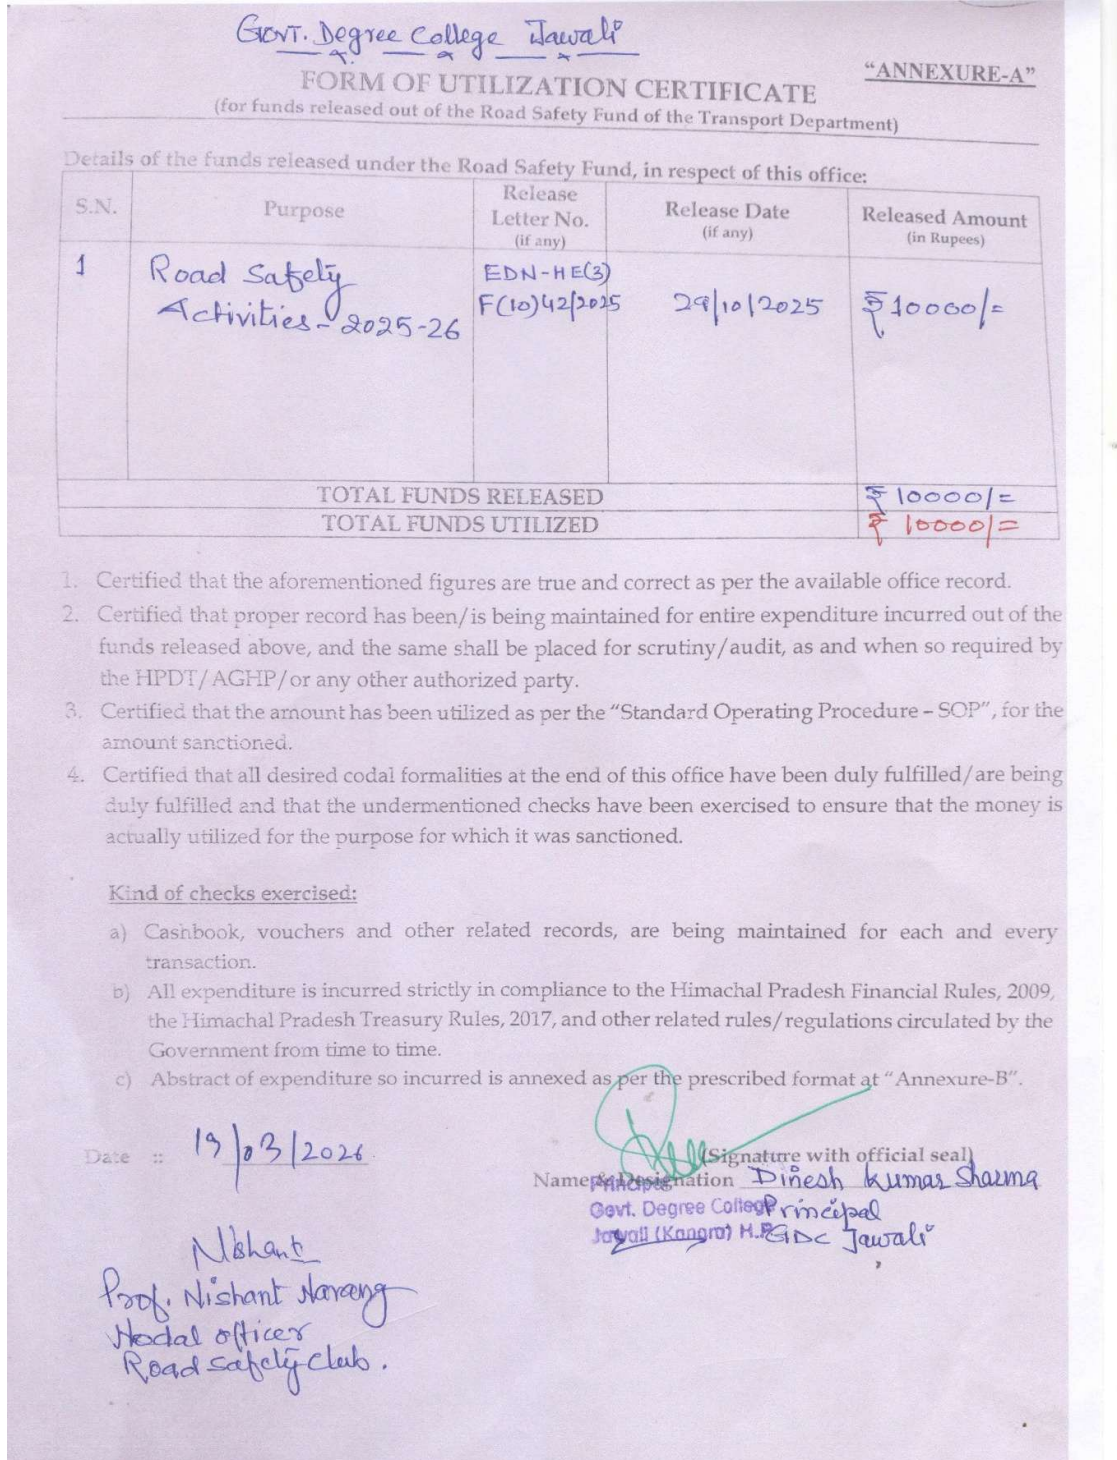 Govt. Degree College Jawali
"ANNEXURE-A"
FORM OF UTILIZATION CERTIFICATE
(for funds released out of the Road Safety Fund of the Transport Department)
Details of the funds released under the Road Safety Fund, in respect of this office:
S.N. Purpose Release Letter No. (if any) Release Date (if any) Released Amount (in Rupees)
1 Road Safety EDN-HE(3)
Activities - 2025-26 F(10)42/2025 29/10/2025 ₹ 10000/=
TOTAL FUNDS RELEASED ₹ 10000/=
TOTAL FUNDS UTILIZED ₹ 10000/=
1. Certified that the aforementioned figures are true and correct as per the available office record.
2. Certified that proper record has been/is being maintained for entire expenditure incurred out of the
funds released above, and the same shall be placed for scrutiny/audit, as and when so required by
the HPDT/AGHP/or any other authorized party.
3. Certified that the amount has been utilized as per the "Standard Operating Procedure – SOP", for the
amount sanctioned.
4. Certified that all desired codal formalities at the end of this office have been duly fulfilled/are being
duly fulfilled and that the undermentioned checks have been exercised to ensure that the money is
actually utilized for the purpose for which it was sanctioned.
Kind of checks exercised:
a) Cashbook, vouchers and other related records, are being maintained for each and every
transaction.
b) All expenditure is incurred strictly in compliance to the Himachal Pradesh Financial Rules, 2009,
the Himachal Pradesh Treasury Rules, 2017, and other related rules/regulations circulated by the
Government from time to time.
c) Abstract of expenditure so incurred is annexed as per the prescribed format at "Annexure-B".
Date :: 19/03/2026
(Signature with official seal)
Name & Designation Dinesh Kumar Sharma
Principal
Govt. Degree College
Jawali (Kangra) H.P.
Principal
GDC Jawali
Nishant
Prof. Nishant Narang
Nodal officer
Road Safety Club.